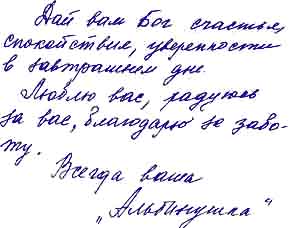 Дай вам Бог счастья,
спокойствие, уверенности
в завтрашнем дне.
Люблю вас, радуюсь
за вас, благодарю за забо-
ту.
Всегда ваша
„Альбинушка“